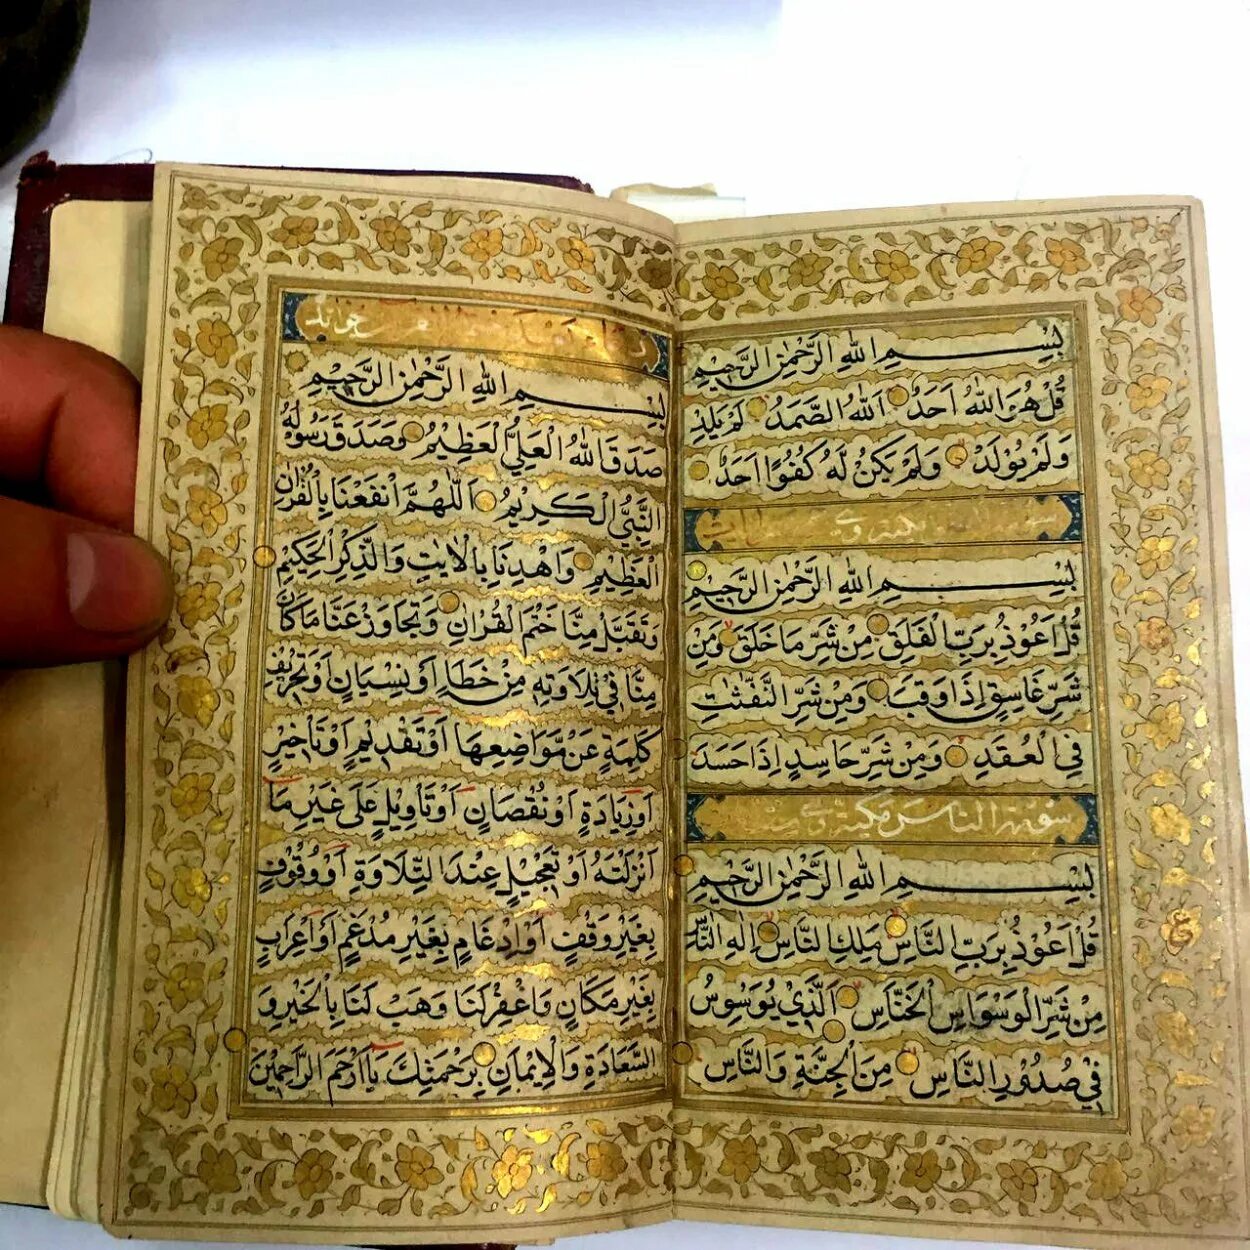 بِسْمِ اللهِ الرَّحْمٰنِ الرَّحِيْمِ
قُلْ هُوَ اللهُ اَحَدٌ اَللهُ الصَّمَدُ لَمْ يَلِدْ
وَلَمْ يُوْلَدْ وَلَمْ يَكُنْ لَهُ كُفُوًا اَحَدٌ
بِسْمِ اللهِ الرَّحْمٰنِ الرَّحِيْمِ
قُلْ اَعُوْذُ بِرَبِّ الْفَلَقِ مِنْ شَرِّ مَا خَلَقَ وَمِنْ
شَرِّ غَاسِقٍ اِذَا وَقَبَ وَمِنْ شَرِّ النَّفّٰثٰتِ
فِي الْعُقَدِ وَمِنْ شَرِّ حَاسِدٍ اِذَا حَسَدَ
سورة الناس مكية وهي
بِسْمِ اللهِ الرَّحْمٰنِ الرَّحِيْمِ
قُلْ اَعُوْذُ بِرَبِّ النَّاسِ مَلِكِ النَّاسِ اِلٰهِ النَّاسِ
مِنْ شَرِّ الْوَسْوَاسِ الْخَنَّاسِ اَلَّذِيْ يُوَسْوِسُ
فِيْ صُدُوْرِ النَّاسِ مِنَ الْجِنَّةِ وَالنَّاسِ
بِسْمِ اللهِ الرَّحْمٰنِ الرَّحِيْمِ
صَدَقَ اللهُ الْعَلِيُّ الْعَظِيْمُ وَصَدَقَ رَسُوْلُهُ
النَّبِيُّ الْكَرِيْمُ اَللّٰهُمَّ انْفَعْنَا بِالْقُرْاٰنِ
الْعَظِيْمِ وَاهْدِنَا بِالْاٰيٰتِ وَالذِّكْرِ الْحَكِيْمِ
وَتَقَبَّلْ مِنَّا خَتْمَ الْقُرْاٰنِ وَتَجَاوَزْ عَنَّا مَا كَانَ
مِنَّا فِيْ تِلَاوَتِهِ مِنْ خَطَاءٍ اَوْ نِسْيَانٍ اَوْ تَحْرِيْفِ
كَلِمَةٍ عَنْ مَوَاضِعِهَا اَوْ تَقْدِيْمٍ اَوْ تَاْخِيْرٍ
اَوْ زِيَادَةٍ اَوْ نُقْصَانٍ اَوْ تَاْوِيْلٍ عَلٰى غَيْرِ مَا
اَنْزَلْتَهُ اَوْ تَعْجِيْلٍ عِنْدَ التِّلَاوَةِ اَوْ وُقُوْفٍ
بِغَيْرِ وَقْفٍ اَوْ اِدْغَامٍ بِغَيْرِ مُدْغَمٍ اَوْ اِعْرَابٍ
بِغَيْرِ مَكَانٍ وَاغْفِرْ لَنَا وَهَبْ لَنَا بِالْخَيْرِ وَ
السَّعَادَةِ وَالْاِيْمَانِ بِرَحْمَتِكَ يَا اَرْحَمَ الرَّاحِمِيْنَ